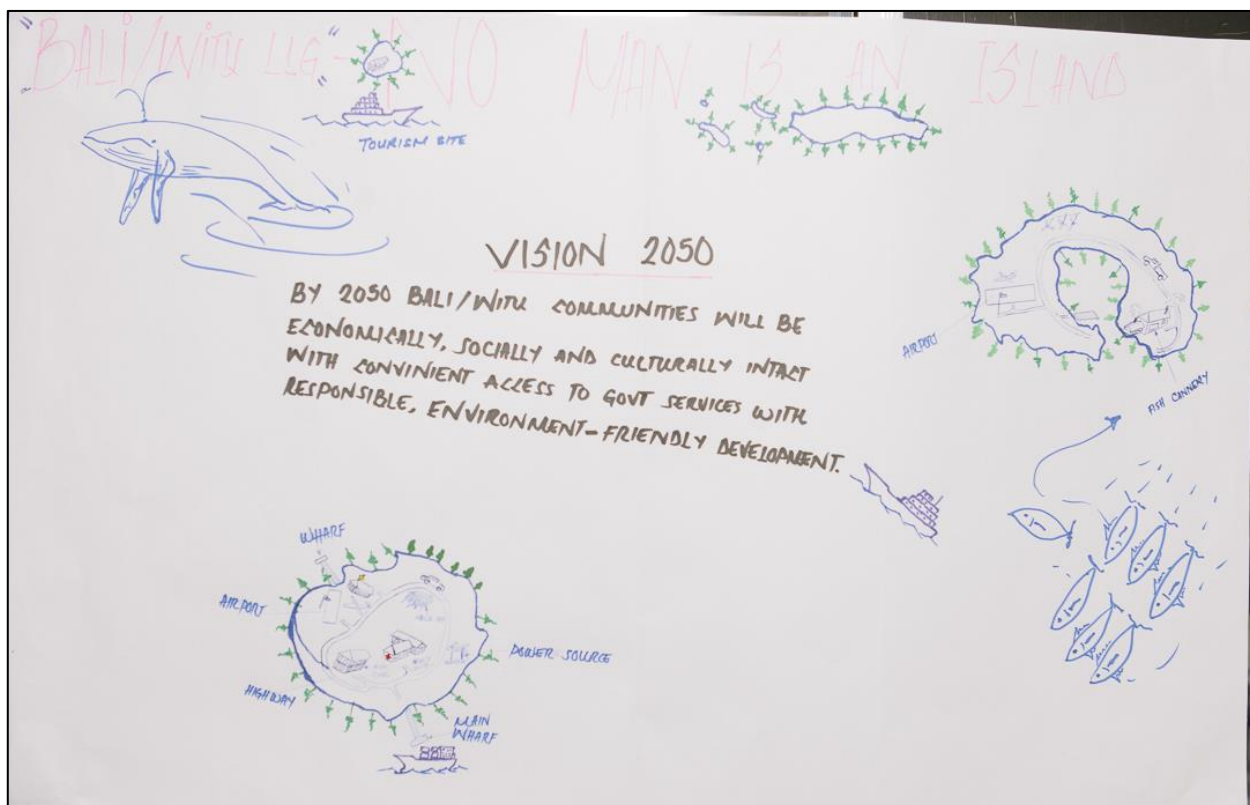 "BALI/WITU LLG - "NO MAN IS AN ISLAND
TOURISM SITE
VISION 2050
BY 2050 BALI/WITU COMMUNITIES WILL BE
ECONOMICALLY, SOCIALLY AND CULTURALLY INTACT
WITH CONVINIENT ACCESS TO GOVT SERVICES WITH
RESPONSIBLE, ENVIRONMENT-FRIENDLY DEVELOPMENT.
AIRPORT
FISH CANNERY
WHARF
AIRPORT
POWER SOURCE
HIGHWAY
MAIN
WHARF